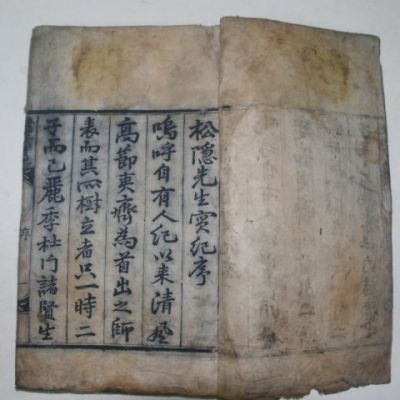 松隱先生實紀序
嗚呼自有人紀以來清風
高節夷齊為首出之師
表而其所樹立者只一時二
子而已麗季杜門諸賢生
序